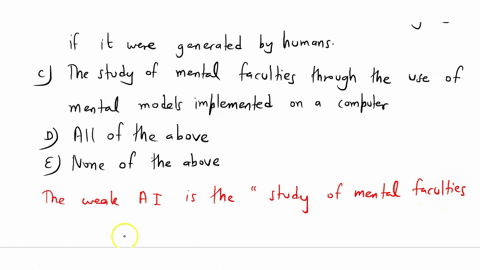 if it were generated by humans.
C) The study of mental faculties through the use of
mental models implemented on a computer
D) All of the above
E) None of the above
The weak AI is the " study of mental faculties